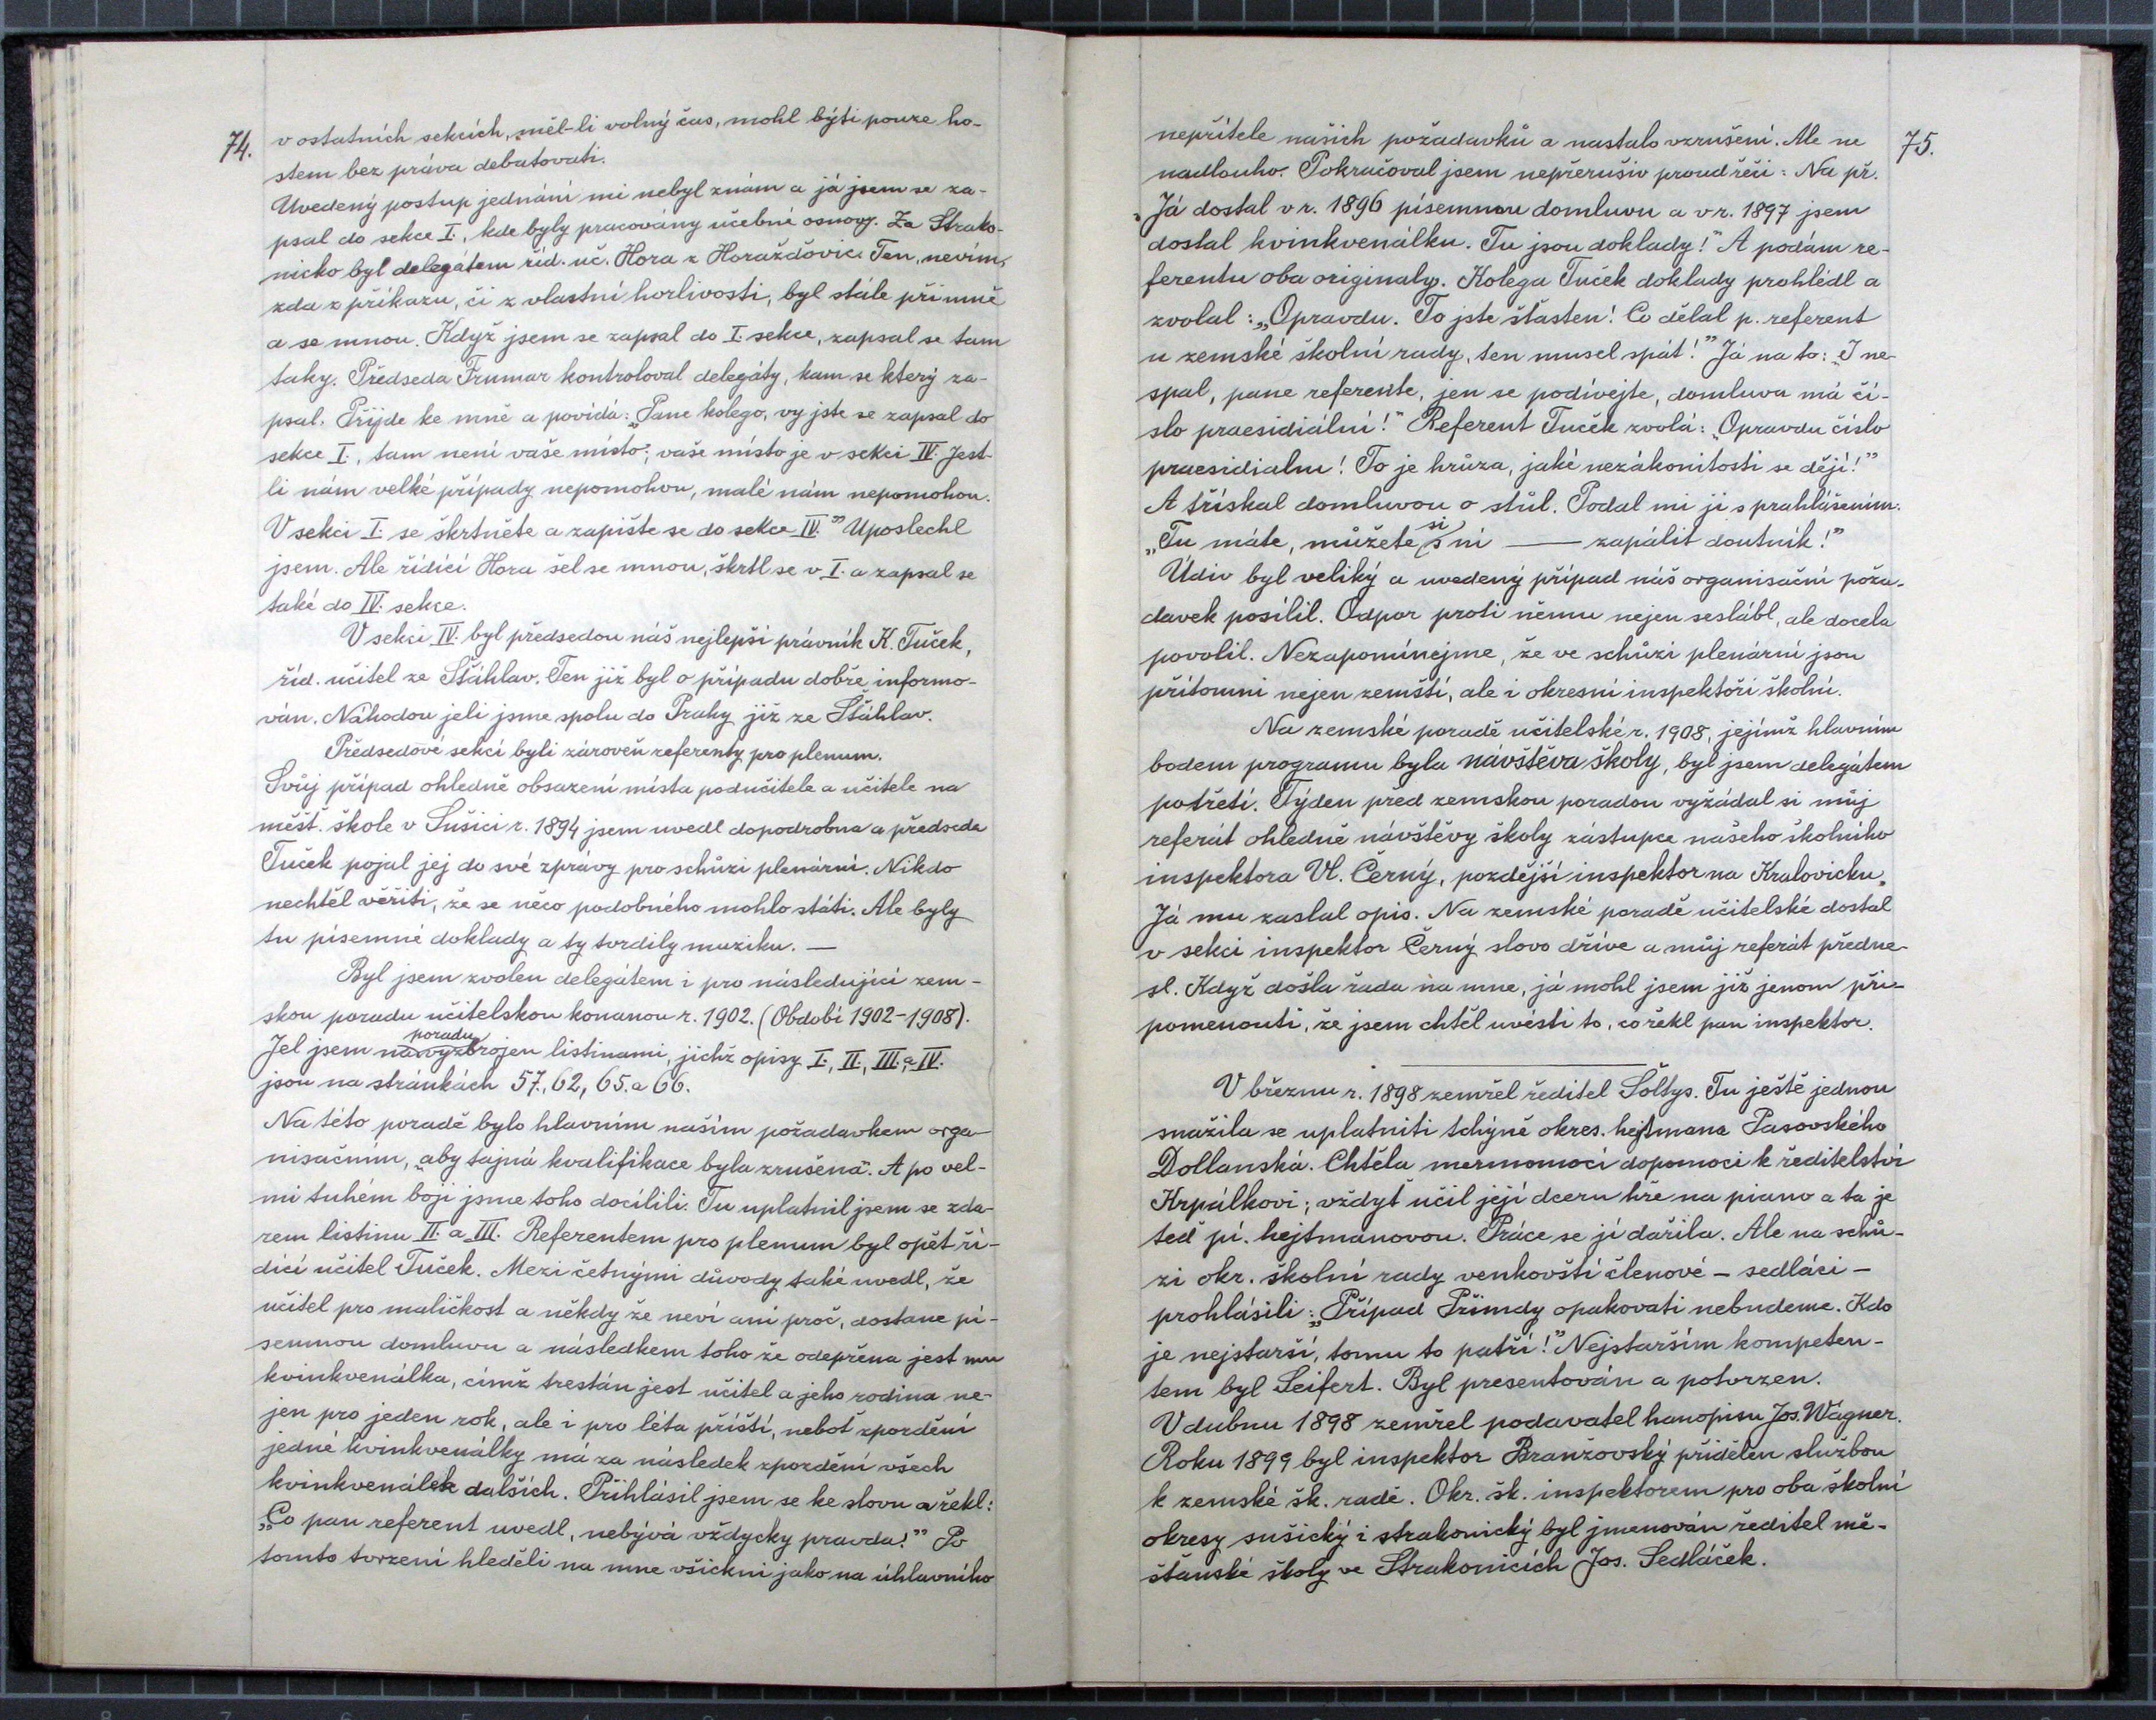 74.
v ostatních sekcích, měl-li volný čas, mohl býti pouze ho-
stem bez práva debatovati.
Uvedený postup jednání mi nebyl znám a já jsem se za-
psal do sekce I., kde byly pracovány učebné osnovy. Za Strako-
nicko byl delegátem říd. uč. Hora z Horažďovic. Ten, nevím,
zda z příkazu, či z vlastní horlivosti, byl stále při mně
a se mnou. Když jsem se zapsal do I. sekce, zapsal se tam
taky. Předseda Frumar kontroloval delegáty, kam se který za-
psal. Přijde ke mně a povídá: „Pane kolego, vy jste se zapsal do
sekce I., tam není vaše místo; vaše místo je v sekci IV. Jest-
li nám velké případy nepomohou, malé nám nepomohou.
V sekci I. se škrtněte a zapište se do sekce IV.” Uposlechl
jsem. Ale řídící Hora šel se mnou, škrtl se v I. a zapsal se
také do IV. sekce.
V sekci IV. byl předsedou náš nejlepší právník K. Tuček,
říd. učitel ze Šťáhlav. Ten již byl o případu dobře informo-
ván. Náhodou jeli jsme spolu do Prahy již ze Šťáhlav.
Předsedové sekcí byli zároveň referenty pro plenum.
Svůj případ ohledně obsazení místa podučitele a učitele na
měšť. škole v Sušici r. 1894 jsem uvedl dopodrobna a předseda
Tuček pojal jej do své zprávy pro schůzi plenární. Nikdo
nechtěl věřiti, že se něco podobného mohlo státi. Ale byly
tu písemné doklady a ty tvrdily muziku. —
Byl jsem zvolen delegátem i pro následující zem-
skou poradu učitelskou konanou r. 1902. (Období 1902-1908).
poradu
Jel jsem na vyzbrojen listinami, jichž opisy I., II., III. a IV.
jsou na stránkách 57., 62, 65. a 66.
Na této poradě bylo hlavním naším požadavkem orga-
nisačním, „aby tajná kvalifikace byla zrušena”. A po vel-
mi tuhém boji jsme toho docílili. Tu uplatnil jsem se zda-
rem listinu II. a III. Referentem pro plenum byl opět ří-
dící učitel Tuček. Mezi četnými důvody také uvedl, že
učitel pro maličkost a někdy že neví ani proč, dostane pí-
semnou domluvu a následkem toho že odepřena jest mu
kvinkvenálka, čímž trestán jest učitel a jeho rodina ne-
jen pro jeden rok, ale i pro léta příští, neboť zpozdění
jedné kvinkvenálky má za následek zpozdění všech
kvinkvenálek dalších. Přihlásil jsem se ke slovu a řekl:
„Co pan referent uvedl, nebývá vždycky pravda!” Po
tomto tvrzení hleděli na mne všickni jako na úhlavního
75.
nepřítele našich požadavků a nastalo vzrušení. Ale ne
nadlouho. Pokračoval jsem nepřerušiv proud řeči: Na př.
„Já dostal v r. 1896 písemnou domluvu a v r. 1897 jsem
dostal kvinkvenálku. Tu jsou doklady!” A podám re-
ferentu oba originaly. Kolega Tuček doklady prohlédl a
zvolal: „Opravdu. To jste šťasten! Co dělal p. referent
u zemské školní rady, ten musel spát!” Já na to: „I ne-
spal, pane referente, jen se podívejte, domluva má čí-
slo praesidiální!” Referent Tuček zvolá: „Opravdu číslo
praesidialní! To je hrůza, jaké nezákonitosti se dějí!”
A třískal domluvou o stůl. Podal mi ji s prohlášením:
si
„Tu máte, můžete s ní — zapálit doutník!”
Údiv byl veliký a uvedený případ náš organisační poža-
davek posílil. Odpor proti němu nejen seslábl, ale docela
povolil. Nezapomínejme, že ve schůzi plenární jsou
přítomni nejen zemští, ale i okresní inspektoři školní.
Na zemské poradě učitelské r. 1908, jejímž hlavním
bodem programu byla návštěva školy, byl jsem delegátem
potřetí. Týden před zemskou poradou vyžádal si můj
referát ohledně návštěvy školy zástupce našeho školního
inspektora Vl. Černý, pozdější inspektor na Kralovicku.
Já mu zaslal opis. Na zemské poradě učitelské dostal
v sekci inspektor Černý slovo dříve a můj referát předne-
sl. Když došla řada na mne, já mohl jsem již jenom při-
pomenouti, že jsem chtěl uvésti to, co řekl pan inspektor.
V březnu r. 1898 zemřel ředitel Šoltys. Tu ještě jednou
snažila se uplatniti tchýně okres. hejtmana Pasovského
Dollanská. Chtěla mermomocí dopomoci k ředitelství
Krpálkovi; vždyť učil její dceru hře na piano a ta je
teď pí. hejtmanovou. Práce se jí dařila. Ale na schů-
zi okr. školní rady venkovští členové - sedláci -
prohlásili: „Případ Přimdy opakovati nebudeme. Kdo
je nejstarší, tomu to patří!” Nejstarším kompeten-
tem byl Seifert. Byl presentován a potvrzen.
V dubnu 1898 zemřel podavatel hanopisu Jos. Wágner.
Roku 1899 byl inspektor Branžovský přidělen službou
k zemské šk. radě. Okr. šk. inspektorem pro oba školní
okresy sušický i strakonický byl jmenován ředitel mě-
šťanské školy ve Strakonicích Jos. Sedláček.